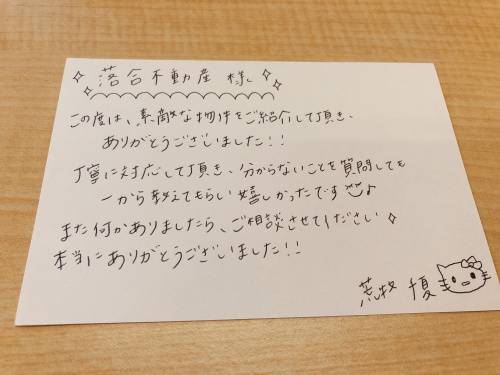 落合不動産 様
この度は、素敵な物件をご紹介して頂き、
ありがとうございました!!
丁寧に対応して頂き、分からないことを質問しても
一から教えてもらい嬉しかったです♪
また何かありましたら、ご相談させてください
本当にありがとうございました!!
荒牧 優